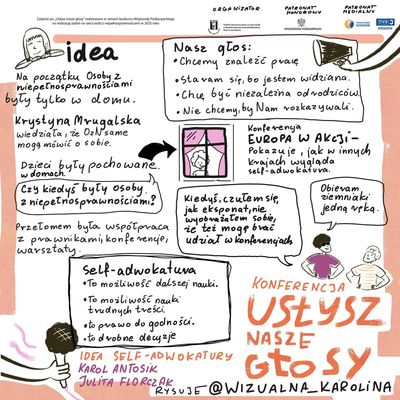 Zadanie pn. „Usłysz nasze głosy" realizowane w ramach konkursu Wojewody Podkarpackiego
na realizację zadań na rzecz osób z niepełnosprawnościami w 2025 roku
ORGANIZATOR
PATRONAT HONOROWY
PATRONAT MEDIALNY
WOJEWODA PODKARPACKI
TVP3
RZESZÓW
idea
Na początku Osoby z
niepełnosprawnościami
były tylko w domu.
Krystyna Mrugalska
wiedziała, że OzN same
mogą mówić o sobie.
Dzieci były pochowane
w domach.
Czy kiedyś były osoby
z niepełnosprawnościami?
Przełomem była współpraca
z prawnikami, konferencje,
warsztaty.
Nasz głos:
•Chcemy znaleźć pracę
•staram się, bo jestem widziana.
•Chcę być niezależna od rodziców.
•Nie chcemy, by Nam rozkazywali.
Konferencja
EUROPA W AKCJI-
Pokazuje, jak w innych
krajach wygląda
self-adwokatura.
Kiedyś, czułem się,
jak eksponat, nie
wyobrażałem sobie,
że też mogę brać
udział w konferencjach
Obieram,
ziemniaki
jedną ręką.
Self-adwokatura
•To możliwość dalszej nauki.
•To możliwość nauki
trudnych treści
•to prawo do godności.
•to drobne decyzje
KONFERENCJA
USŁYSZ
NASZE
GŁOSY
IDEA SELF-ADWOKATURY
KAROL ANTOSIK
JULITA FLORCZAK
RYSUJE @WIZUALNA_KAROLINA